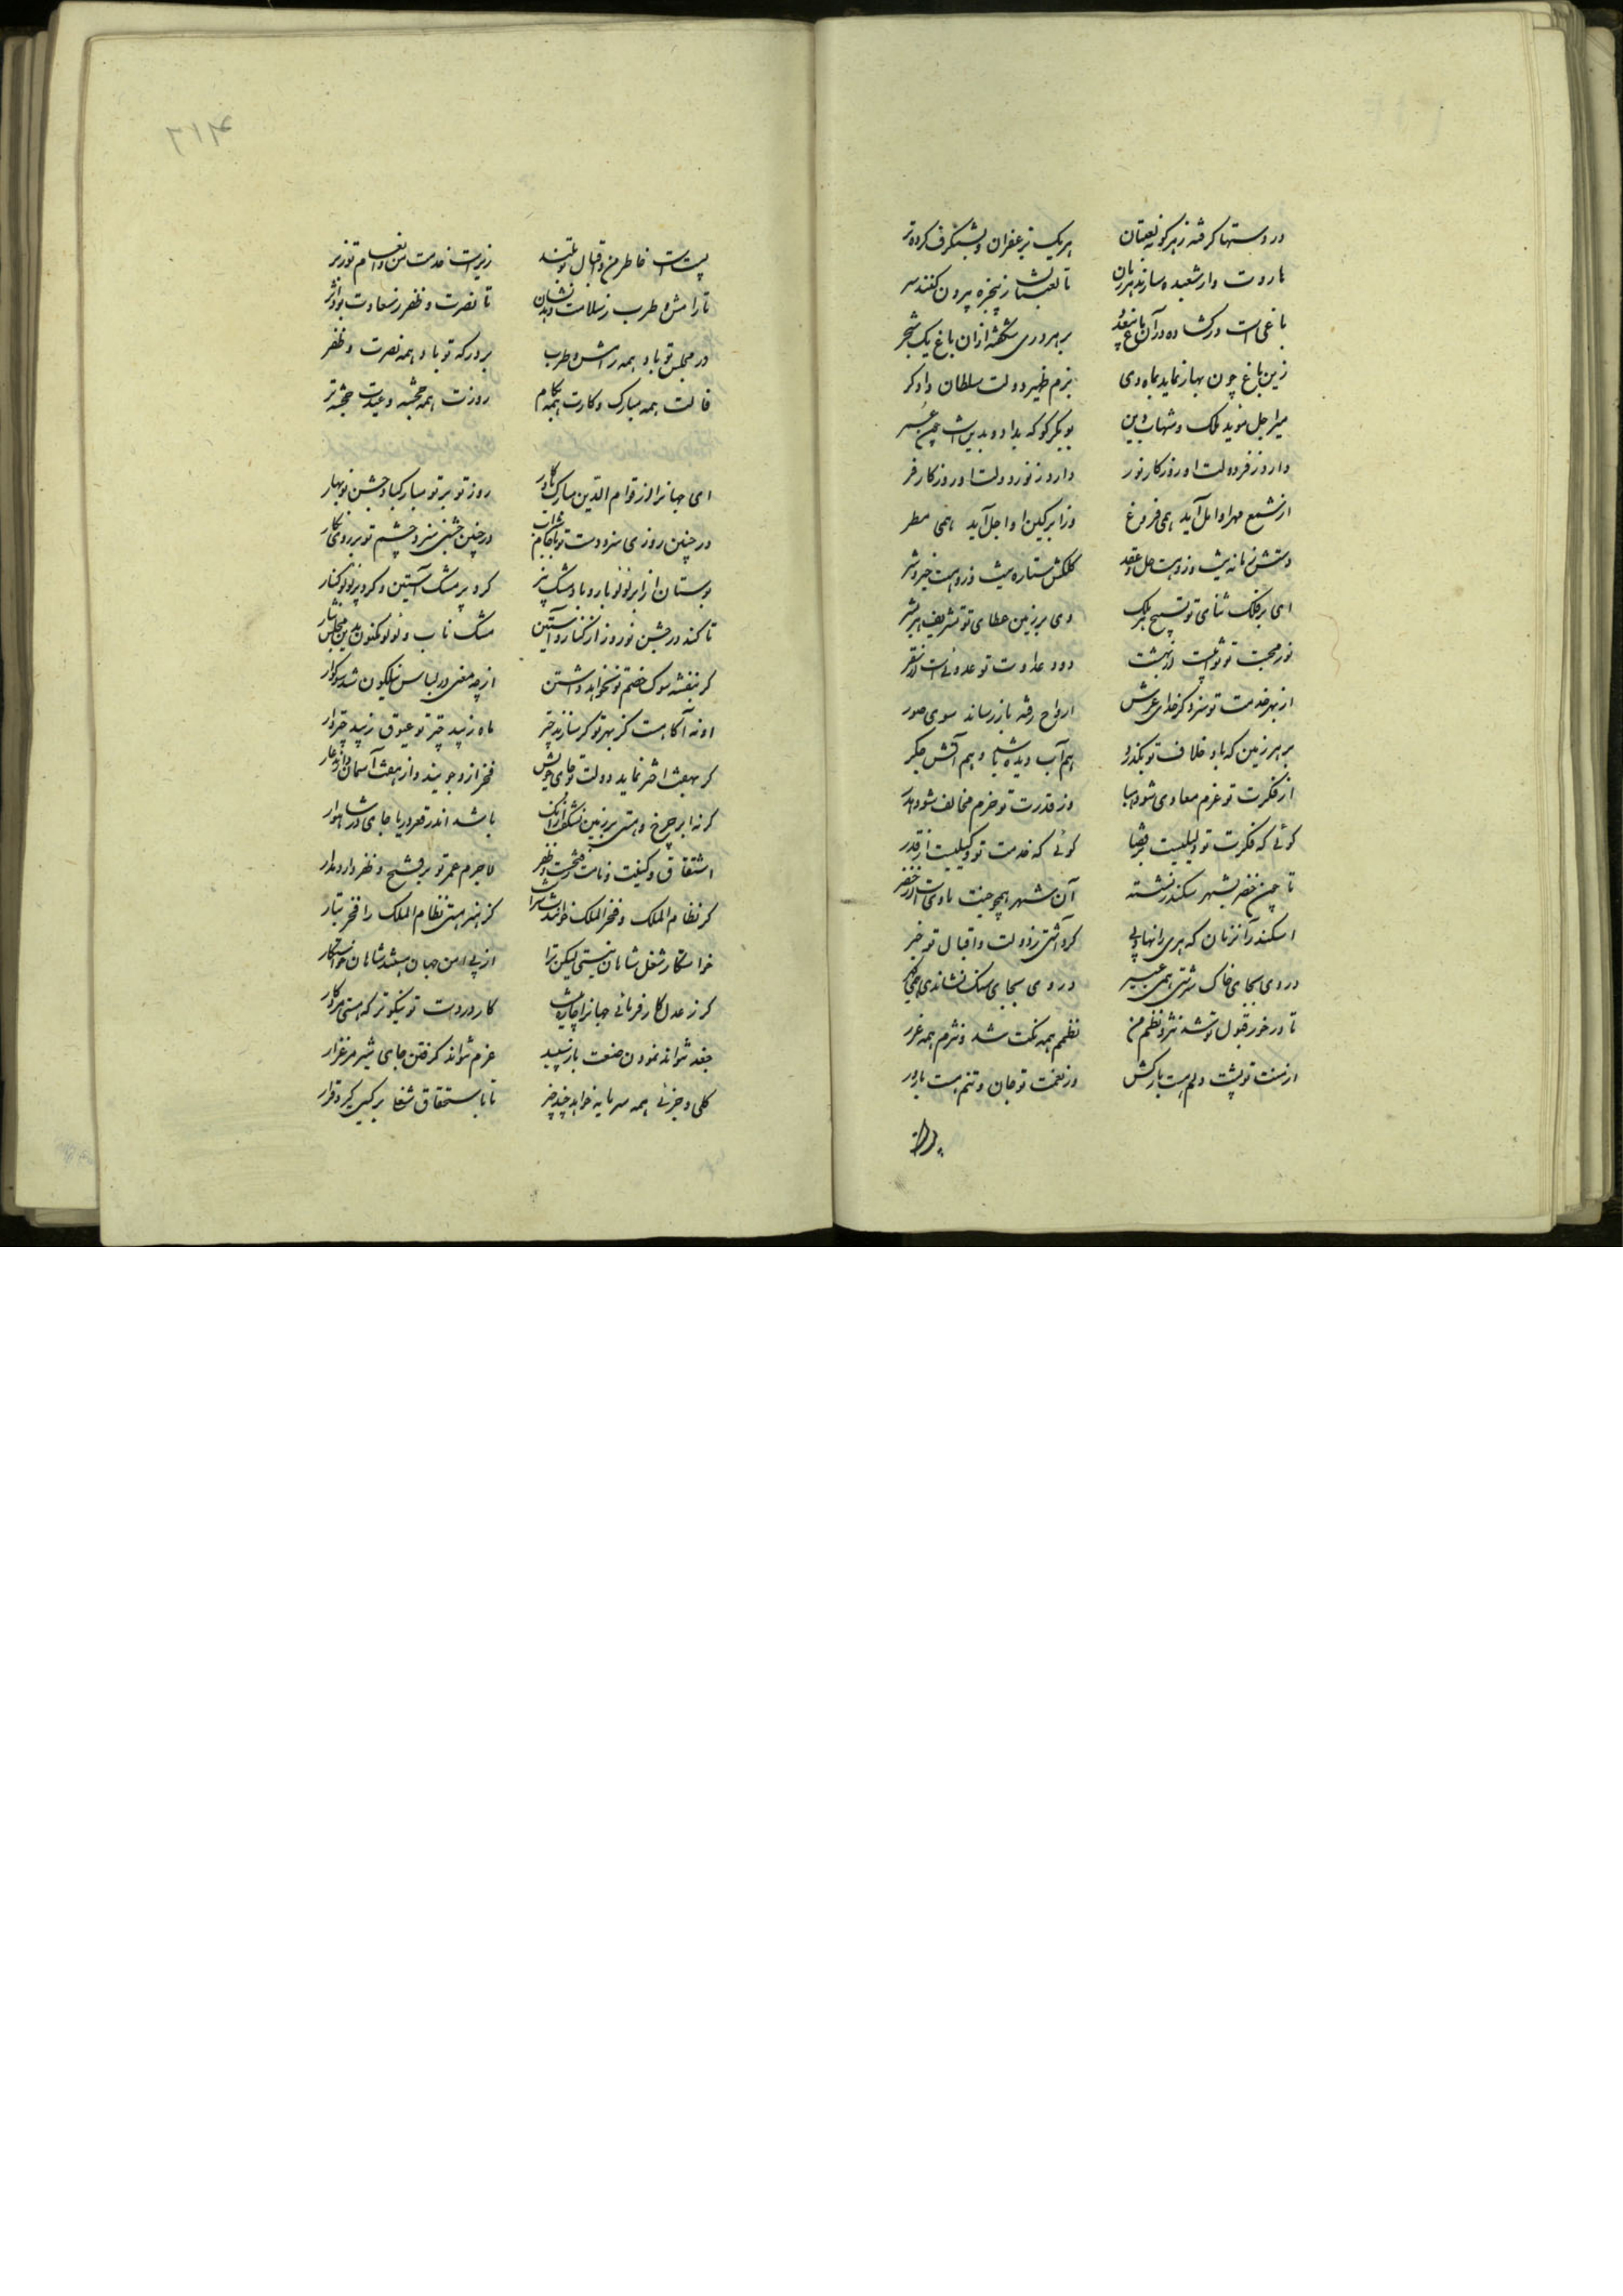 در دستها گرفته ز هر گونه لعبتان هر یک بزعفران و بشنگرف کرده تر
هاروت وار شعبده سازند هر زمان تا لعبتان ز پنجره بیرون کنند سر
باغی است در گشاده در آن باغ بر هر دری شکفته از آن باغ یک شجر
زین باغ چون بهار نماید بماه دی بزم ظهیر دولت سلطان دادگر
میر اجل موید ملک و شهاب دین بوبکر کو که بداد و بدین است چون عمر
دارد ز فر دولت او روزگار نور دارد ز نور دولت او روزگار فر
از شمع مهر او امل آید همی فروغ وز ابر کین او اجل آید همی مطر
دستش زمانه نیست و زو هست حل و عقد کلکش ستاره نیست و زو هست خیر و شر
ای بر فلک ثنای تو تسبیح هر ملک وی بر زمین عطای تو تشریف هر بشر
نور محبت تو ثوابیست از بهشت دود عداوت تو عدوئی است از سقر
از بهر خدمت تو سزد گر خدای عرش ارواح رفته باز رساند سوی صور
بر هر زمین که باد خلاف تو بگذرد هم آب دیده باشد و هم آتش جگر
از فکرت تو عزم معادی شود هبا وز قدرت تو خرم مخالف شود هدر
گوئی که فکرت تو دلیلیست بر قضا گوئی که خدمت تو وکیلیست از قدر
تا چون خضر بشهر سکندر نشسته آن شهر همچو جنت ماوی است از خضر
اسکندر آنزمان که پی را نهاد پی گر داشتی ز دولت و اقبال تو خبر
در وی بجای خاک سرشتی همی عبیر در وی بجای سنگ نشاندی همی گهر
تا در خور قبول تو شد نثر و نظم من نظمم همه نکت شد و نثرم همه غرر
از منت تو پشت و دلم هست بارکش وز نعمت تو جان و تنم هست بارور
۲۱۴
پیوست خاطر من و اقبال تو بلند زیراست خدمت من و انعام تو زبر
تا رامش و طرب ز سلامت دهد نشان تا نصرت و ظفر ز سعادت بود اثر
در مجلس تو باد همه رامش و طرب بر درگه تو باد همه نصرت و ظفر
فالت همه مبارک و کارت همه بکام روزت همه خجسته و عیدت خجسته تر
ای جهانرا از قوام الدین مبارک یادگار روز تو بر تو مبارک باد و جشن نوبهار
در چنین روزی سزد دست تو با جام شراب در چنین جشنی سزد چشم تو بر روی نگار
بوستان از ابر لولو بار و باد مشک بیز کرد پر مشک آستین و کرد پر لولو کنار
تا کند در جشن نوروز از کنار و آستین مشک ناب و لولو مکنون بدین مجلس نثار
گر بنفشه سوک خصم تو نخواهد داشتن از چه معنی در لباس نیلگون شد سوگوار
او نه آگاهست کز بهر تو گر سازند چتر ماه زیبد چتر تو عیوق زیبد چتردار
گر بهفت اختر نماید دولت تو جای خویش فخر از او جویند و از هفت آسمان دارند عار
گر نه ابر چرخ و هستی بر زمین نشگفت از آنک باشد اندر قعر دریا جای در شاهوار
اشتقاق و کنیت و نامت ز فتحست و ظفر لاجرم عمر تو بر فتح و ظفر دارد مدار
گر نظام الملک و فخر الملک خوانندت سزاست کز هنر هستی نظام الملک را فخر تبار
خواستگار شغل شاهان نیستی لیکن ترا از پی امن جهان هستند شاهان خواستگار
گر ز عدل کارفرمائی جهانرا چاره نیست کار در دست تو نیکوتر که هستی مرد کار
جغد نتواند نمودن صنعت باز سپید غرم نتواند گرفتن جای شیر مرغزار
کلی و جزئی همه سرمایه خواهد چند چیز تا باستحقاق شغلی بر کسی گیرد قرار